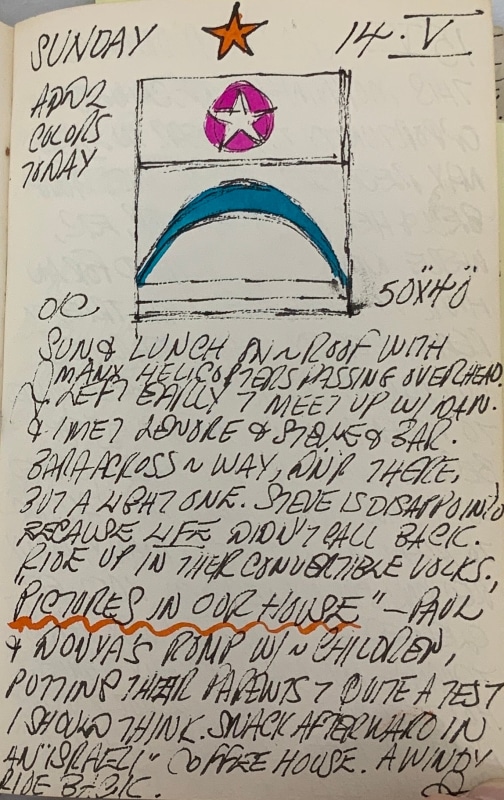 SUNDAY 14·V
ADD 2
COLORS
TODAY
50"X40"
OC
SUN & LUNCH ON ~ ROOF WITH
MANY HELICOPTERS PASSING OVERHEAD.
LEFT EARLY T MEET UP W/
& I MET LENORE & STEVE & BAR.
BAR ACROSS ~ WAY, DNR THERE,
BUT A LIGHT ONE. STEVE IS DISAPPOIN'D
BECAUSE LIFE DIDN'T CALL BACK.
RIDE UP IN THEIR CONVERTIBLE VOLKS.
"PICTURES IN OUR HOUSE" — PAUL
& NONYAS ROMP W/ ~ CHILDREN,
PUTTING THEIR PARENTS T QUITE A TEST
I SHOULD THINK. SNACK AFTERWARD IN
AN "ISRAELI" COFFEE HOUSE. A WINDY
RIDE BACK.